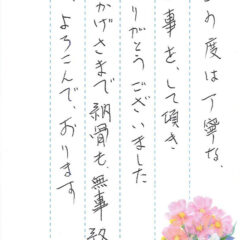 の度は丁寧な、
事を、して頂き
りがとうございました
かげさまで納骨も、無事
よろこんで、おります